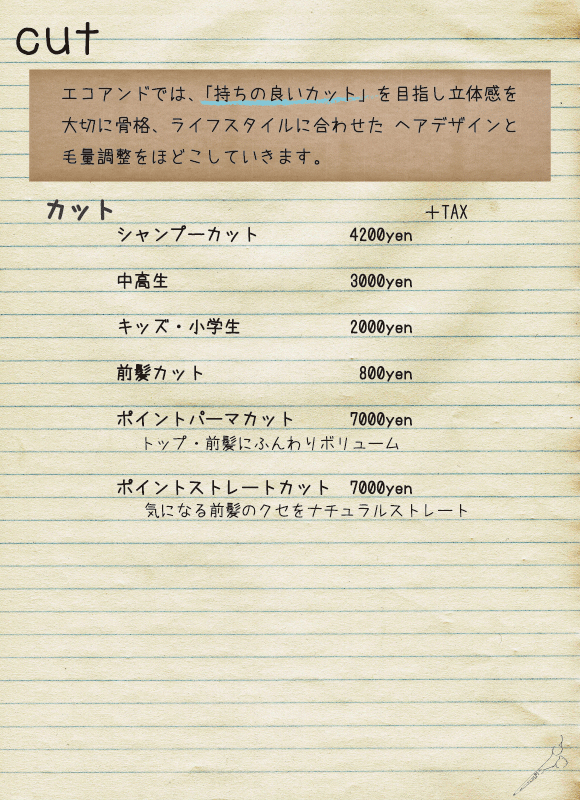 cut
エコアンドでは、「持ちの良いカット」を目指し立体感を
大切に骨格、ライフスタイルに合わせた ヘアデザインと
毛量調整をほどこしていきます。
カット ＋TAX
シャンプーカット 4200yen
中高生 3000yen
キッズ・小学生 2000yen
前髪カット 800yen
ポイントパーマカット 7000yen
トップ・前髪にふんわりボリューム
ポイントストレートカット 7000yen
気になる前髪のクセをナチュラルストレート